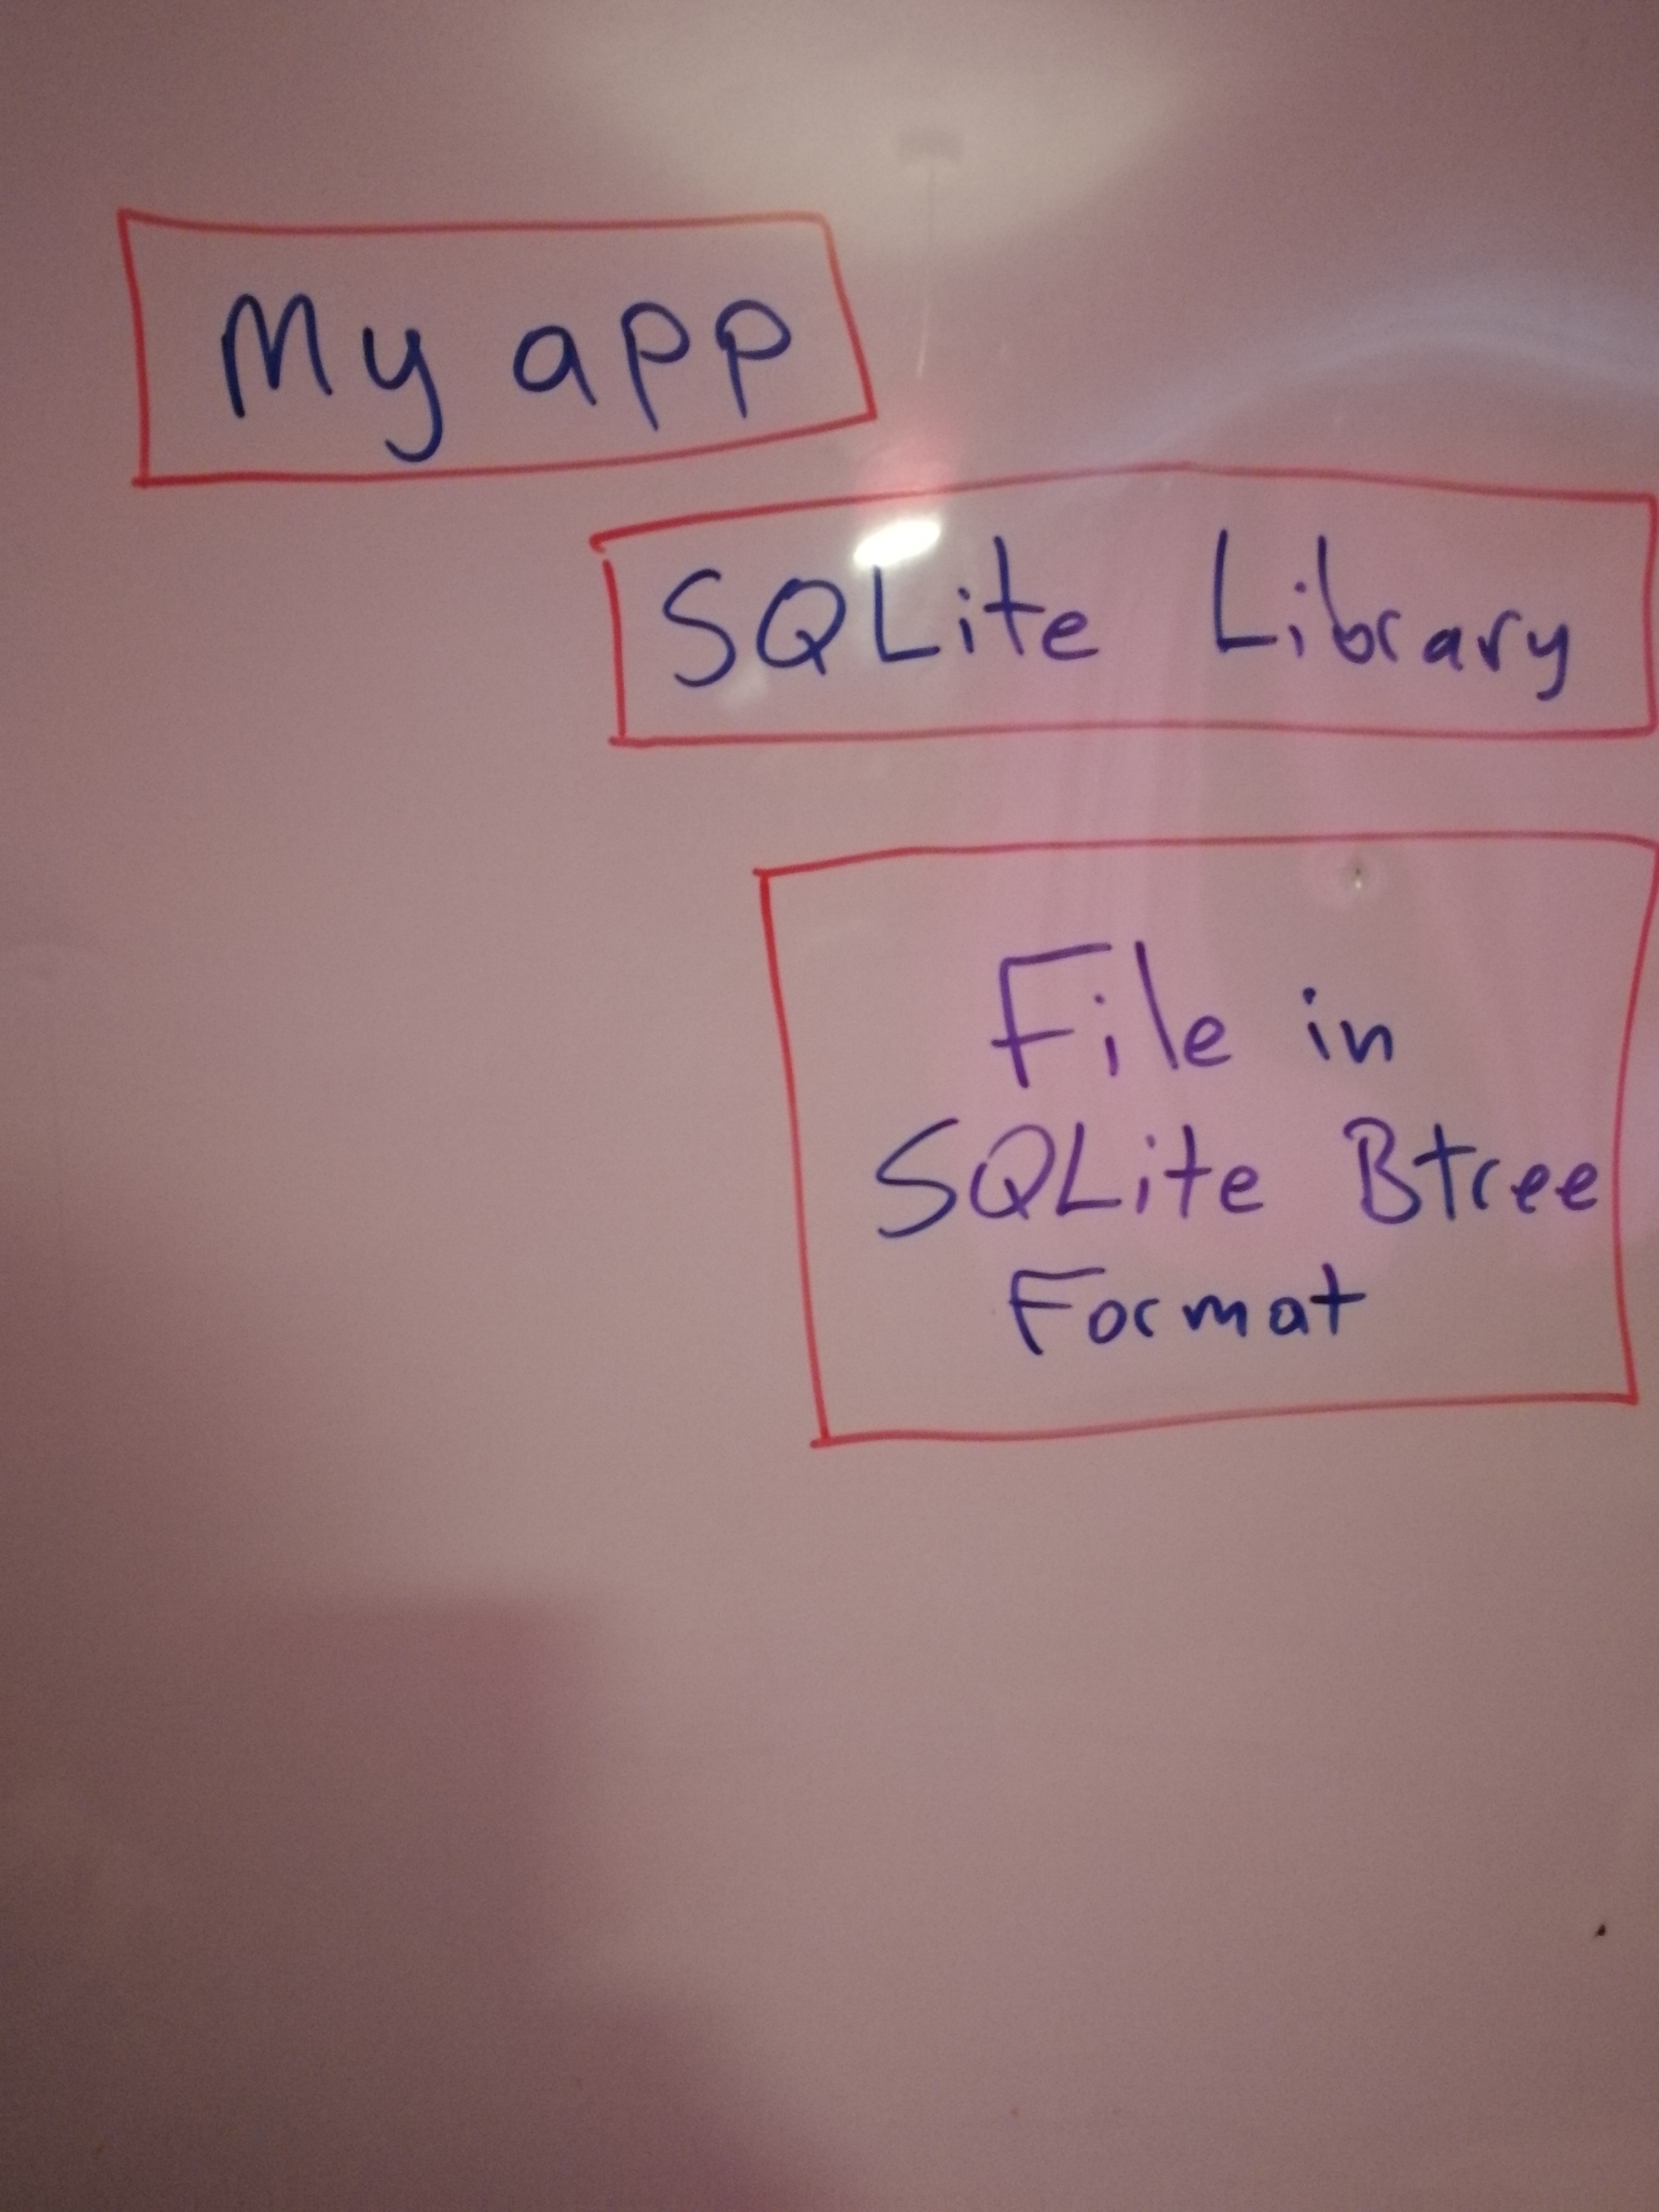 My app
SQLite Library
File in
SQLite Btree
Format